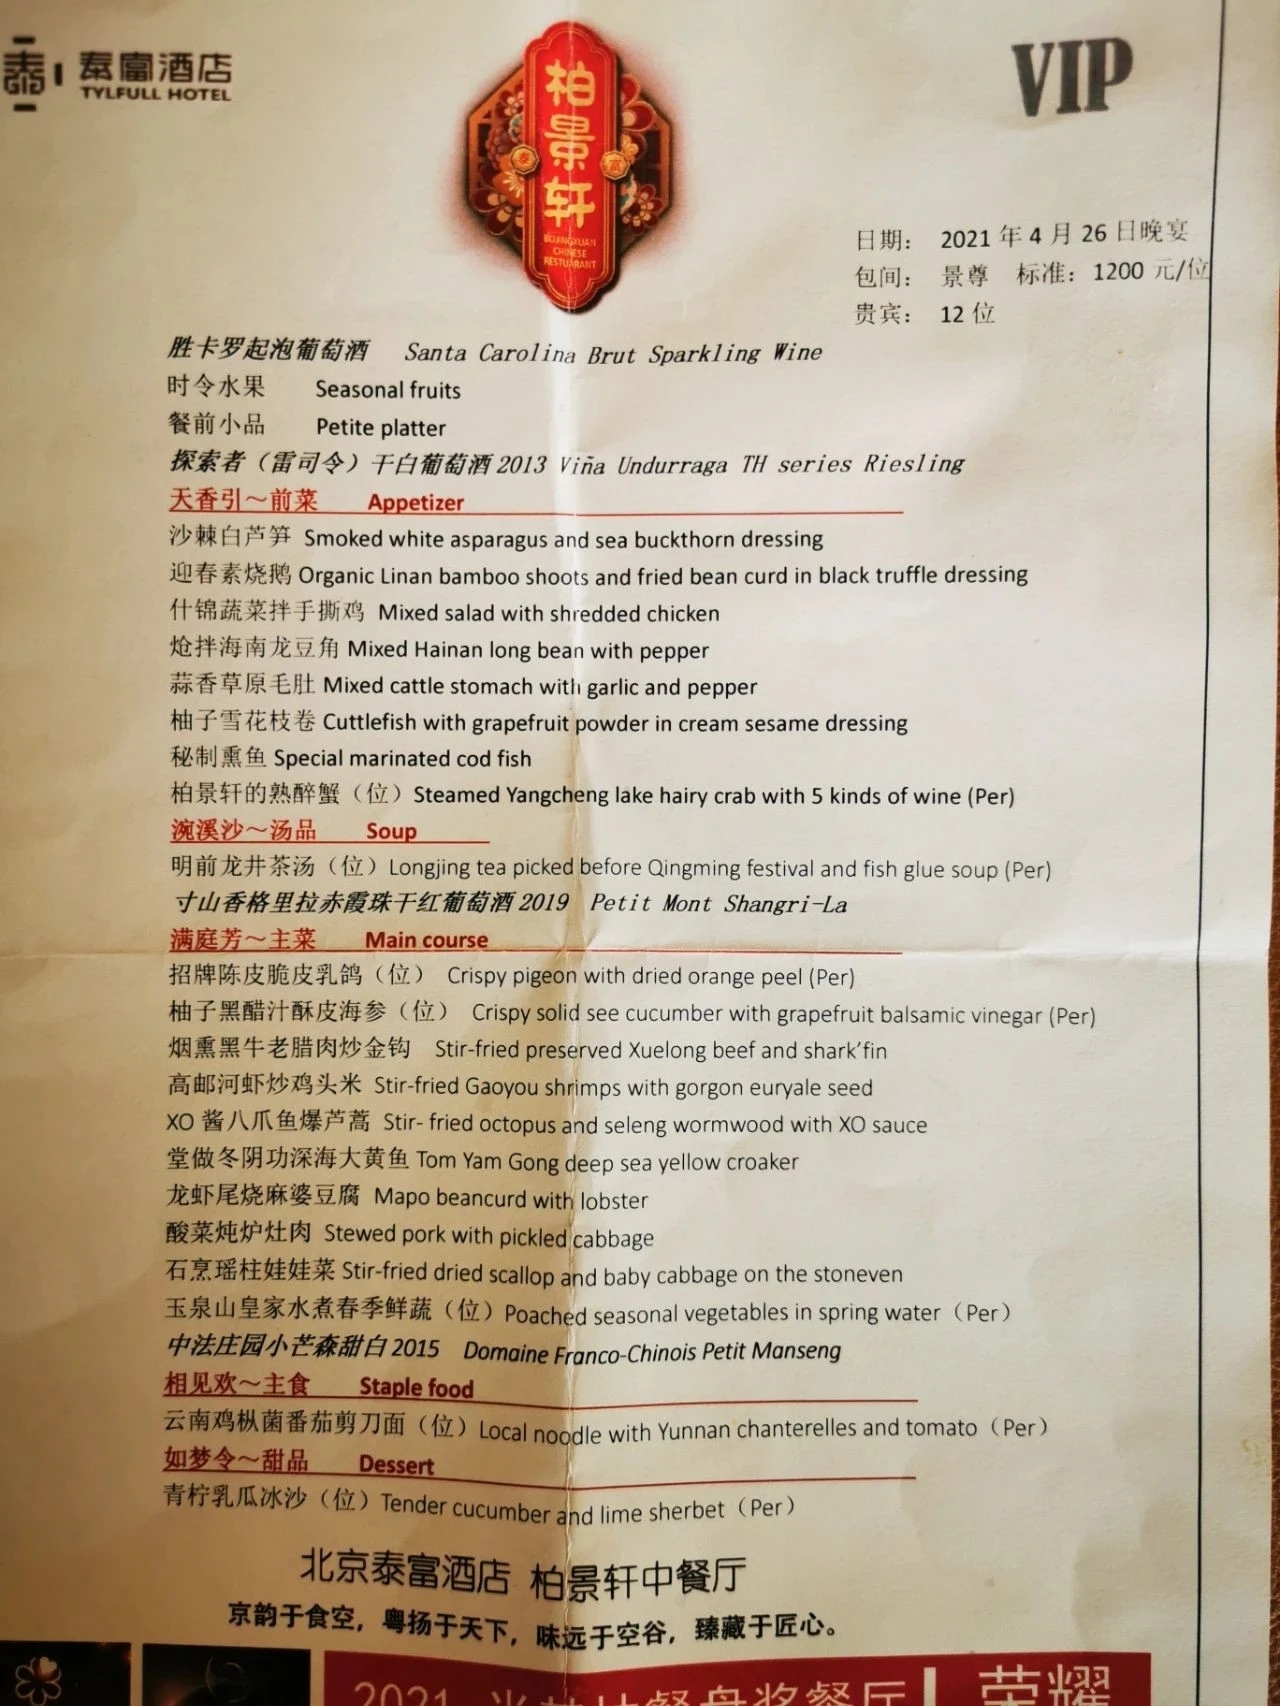 泰富酒店
TYLFULL HOTEL
柏景轩
泰 富
BOJINGXUAN
CHINESE
RESTUARANT
VIP
日期： 2021 年 4 月 26 日晚宴
包间： 景尊 标准：1200 元/位
贵宾： 12 位
胜卡罗起泡葡萄酒 Santa Carolina Brut Sparkling Wine
时令水果 Seasonal fruits
餐前小品 Petite platter
探索者（雷司令）干白葡萄酒 2013 Viña Undurraga TH series Riesling
天香引～前菜 Appetizer
沙棘白芦笋 Smoked white asparagus and sea buckthorn dressing
迎春素烧鹅 Organic Linan bamboo shoots and fried bean curd in black truffle dressing
什锦蔬菜拌手撕鸡 Mixed salad with shredded chicken
炝拌海南龙豆角 Mixed Hainan long bean with pepper
蒜香草原毛肚 Mixed cattle stomach with garlic and pepper
柚子雪花枝卷 Cuttlefish with grapefruit powder in cream sesame dressing
秘制熏鱼 Special marinated cod fish
柏景轩的熟醉蟹（位）Steamed Yangcheng lake hairy crab with 5 kinds of wine (Per)
浣溪沙～汤品 Soup
明前龙井茶汤（位）Longjing tea picked before Qingming festival and fish glue soup (Per)
寸山香格里拉赤霞珠干红葡萄酒 2019 Petit Mont Shangri-La
满庭芳～主菜 Main course
招牌陈皮脆皮乳鸽（位） Crispy pigeon with dried orange peel (Per)
柚子黑醋汁酥皮海参（位） Crispy solid see cucumber with grapefruit balsamic vinegar (Per)
烟熏黑牛老腊肉炒金钩 Stir-fried preserved Xuelong beef and shark'fin
高邮河虾炒鸡头米 Stir-fried Gaoyou shrimps with gorgon euryale seed
XO 酱八爪鱼爆芦蒿 Stir- fried octopus and seleng wormwood with XO sauce
堂做冬阴功深海大黄鱼 Tom Yam Gong deep sea yellow croaker
龙虾尾烧麻婆豆腐 Mapo beancurd with lobster
酸菜炖炉灶肉 Stewed pork with pickled cabbage
石烹瑶柱娃娃菜 Stir-fried dried scallop and baby cabbage on the stoneven
玉泉山皇家水煮春季鲜蔬（位）Poached seasonal vegetables in spring water（Per）
中法庄园小芒森甜白 2015 Domaine Franco-Chinois Petit Manseng
相见欢～主食 Staple food
云南鸡枞菌番茄剪刀面（位）Local noodle with Yunnan chanterelles and tomato（Per）
如梦令～甜品 Dessert
青柠乳瓜冰沙（位）Tender cucumber and lime sherbet（Per）
北京泰富酒店 柏景轩中餐厅
京韵于食空，粤扬于天下，味远于空谷，臻藏于匠心。
2021 米其林餐盘奖餐厅 荣耀